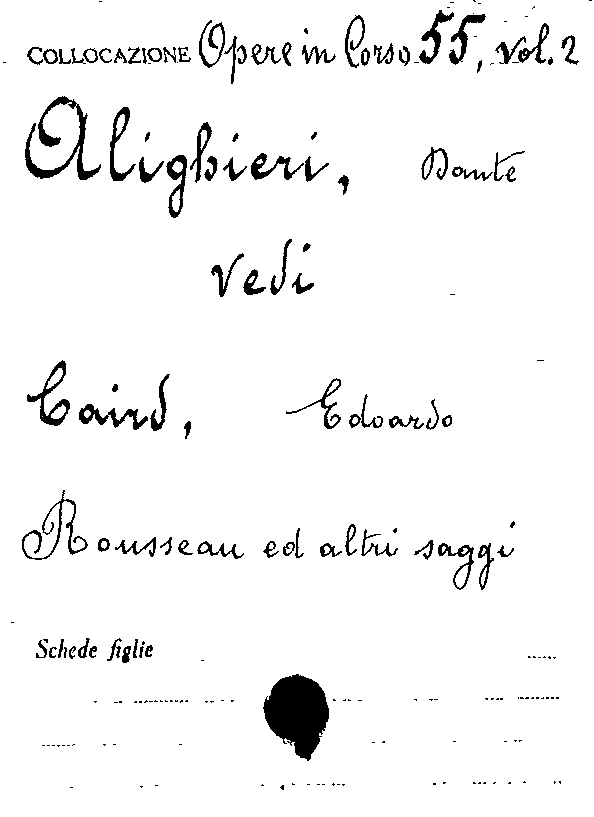 COLLOCAZIONE Opere in Corso 55, vol. 2
Alighieri, Dante
vedi
Caird, Edoardo
Rousseau ed altri saggi
Schede figlie